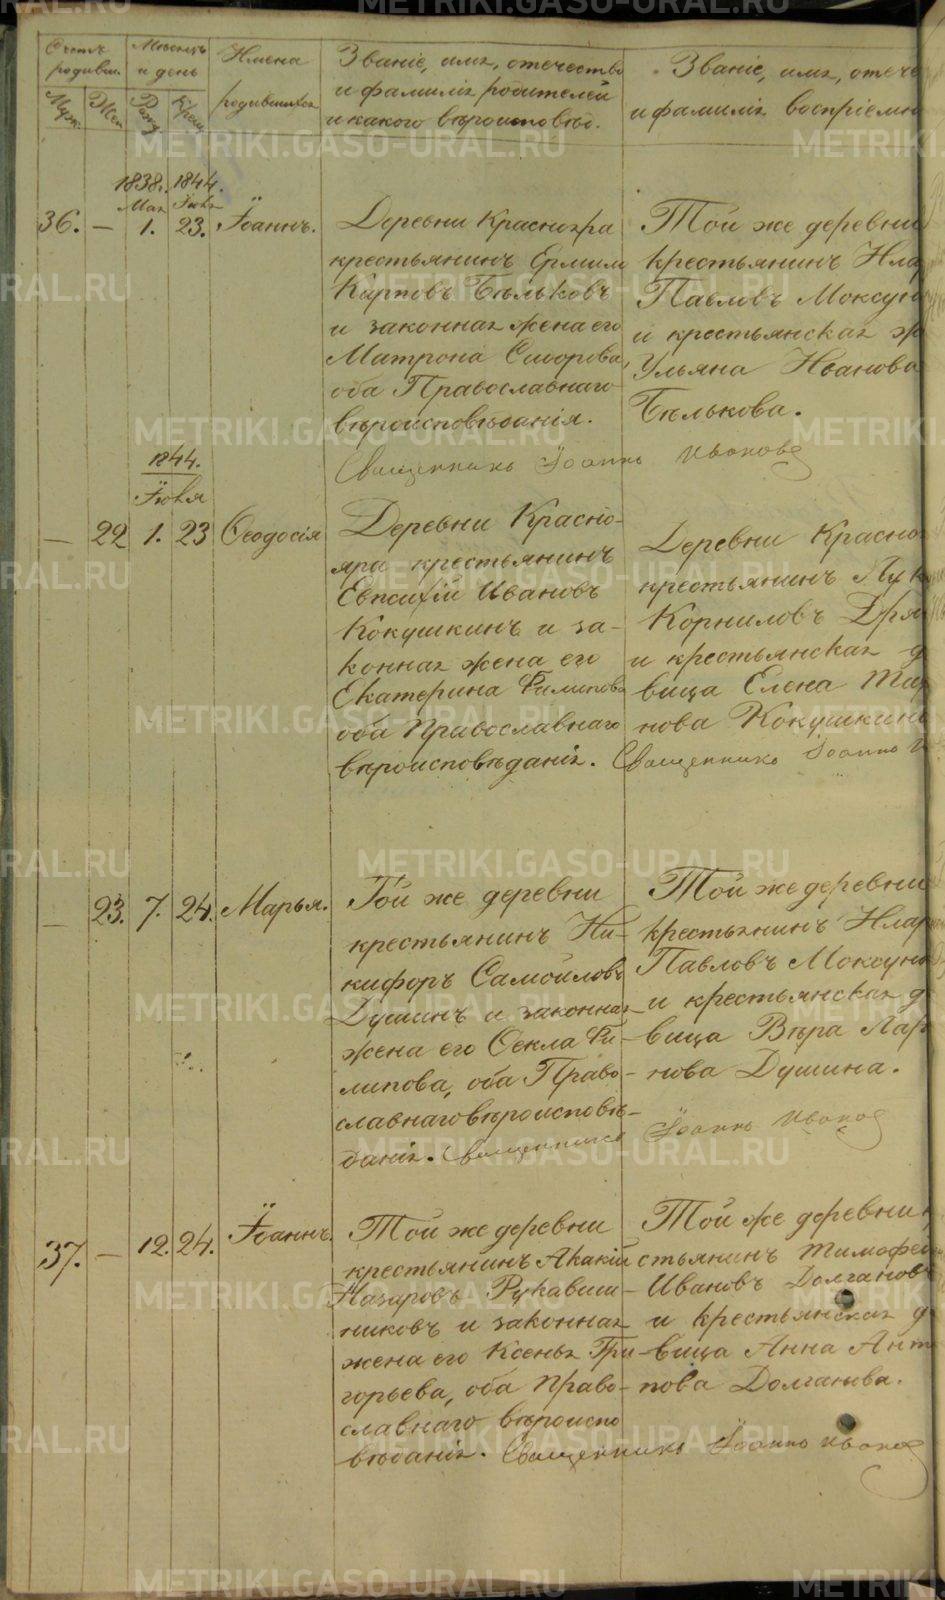 Счетъ родивш.
Муж.
Жен
Мѣсяцъ и день
Рожд
Крещ
Имена родившихся
Званіе, имя, отечество
и фамилія родителей
и какого вѣроисповѣд.
Званіе, имя, отече
и фамилія воспріемн
1838. 1844.
Мая Іюля
36. — 1. 23. Іоаннъ.
Деревни Краснояра
крестьянинъ Ермилъ
Карповъ Бѣльковъ
и законная жена его
Матрона Сидорова,
оба Православнаго
вѣроисповѣданія.
Той же деревни
крестьянинъ Илар
Павловъ Моксун
и крестьянская
Ульяна Иванова
Бѣлькова.
Священникъ Іоаннъ Ивановъ
1844.
Іюля
— 22 1. 23 Ѳеодосія
Деревни Красно-
яра крестьянинъ
Евпсихій Ивановъ
Кокушкинъ и за-
конная жена его
Екатерина Филипова
оба Православнаго
вѣроисповѣданія.
Деревни Красно
крестьянинъ Лук
Корниловъ Дря
и крестьянская д
вица Елена
нова Кокушкин
Священникъ Іоаннъ И
— 23. 7. 24. Марья.
Той же деревни
крестьянинъ Ни-
кифоръ Самойловъ
Душинъ и законная
жена его Ѳекла Фи-
липова, оба Право-
славнаго вѣроисповѣ-
данія. Священникъ
Той же деревни
крестьянинъ Илар
Павловъ Моксун
и крестьянская д
вица Вѣра Лар
нова Душина.
Іоаннъ Ивановъ
37. — 12. 24. Іоаннъ.
Той же деревни
крестьянинъ Акакій
Назаровъ Рукавиш-
никовъ и законная
жена его Ксенья Гри-
горьева, оба Право-
славнаго вѣроиспо
вѣданія.
Той же деревни к
стьянинъ Тимофей
Ивановъ Долгановъ
и крестьянская д
вица Анна Ант
пова Долганова.
Священникъ Іоаннъ Ивановъ
METRIKI.GASO-URAL.RU